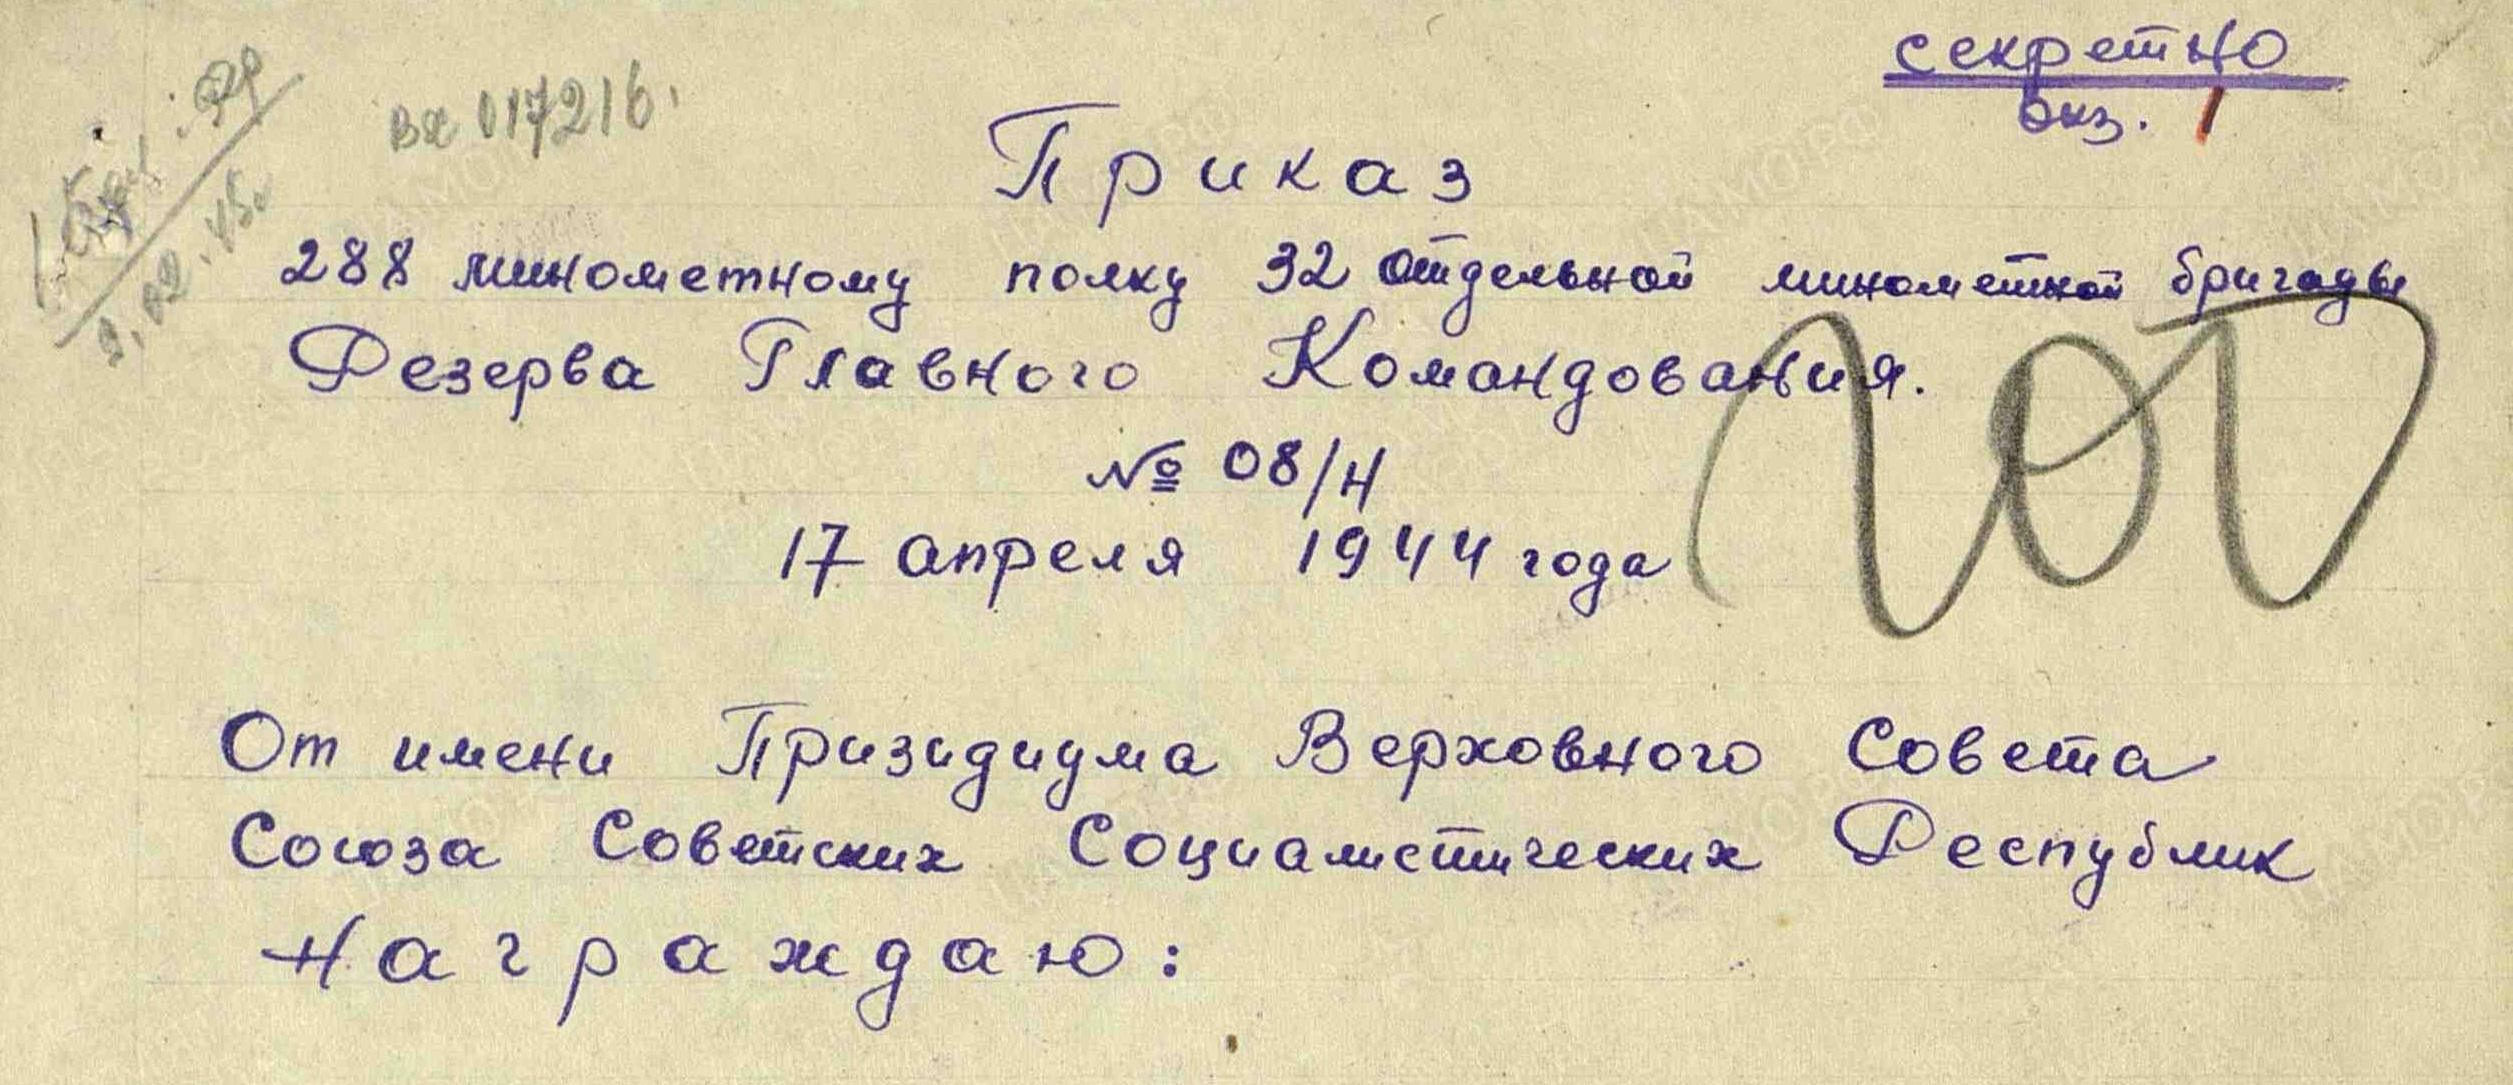 секретно
экз. 1
Вх 017216.
Приказ
288 минометному полку 32 отдельной минометной бригады
Резерва Главного Командования.
№ 08/Н
17 апреля 1944 года
От имени Призидиума Верховного Совета
Союза Советских Социалистических Республик
Награждаю: